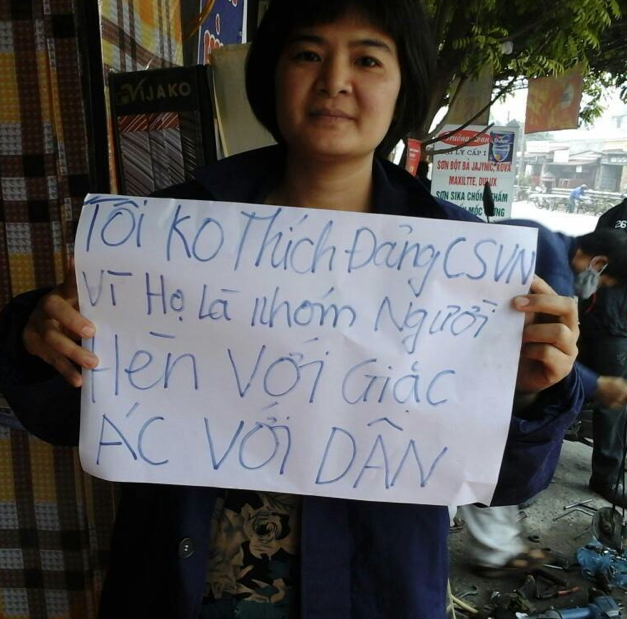 TÔI KO Thích Đảng CSVN
Vì Họ Là Nhóm Người
Hèn Với Giặc
ÁC VỚI DÂN
VIJAKO
LÝ CẤP I
SƠN BỘT BẢ JAJYNIC, KOVA
MAXILTTE, DULUX
SƠN SIKA CHỐNG THẤM